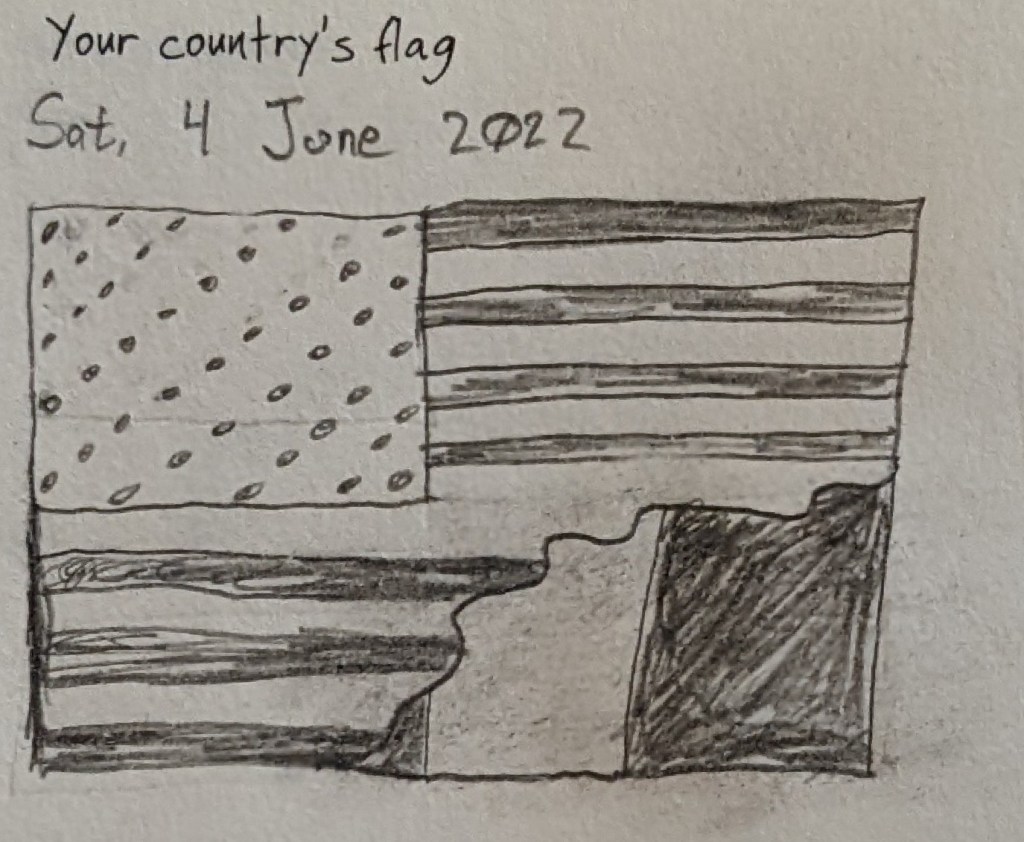 Your country's flag
Sat, 4 June 2022